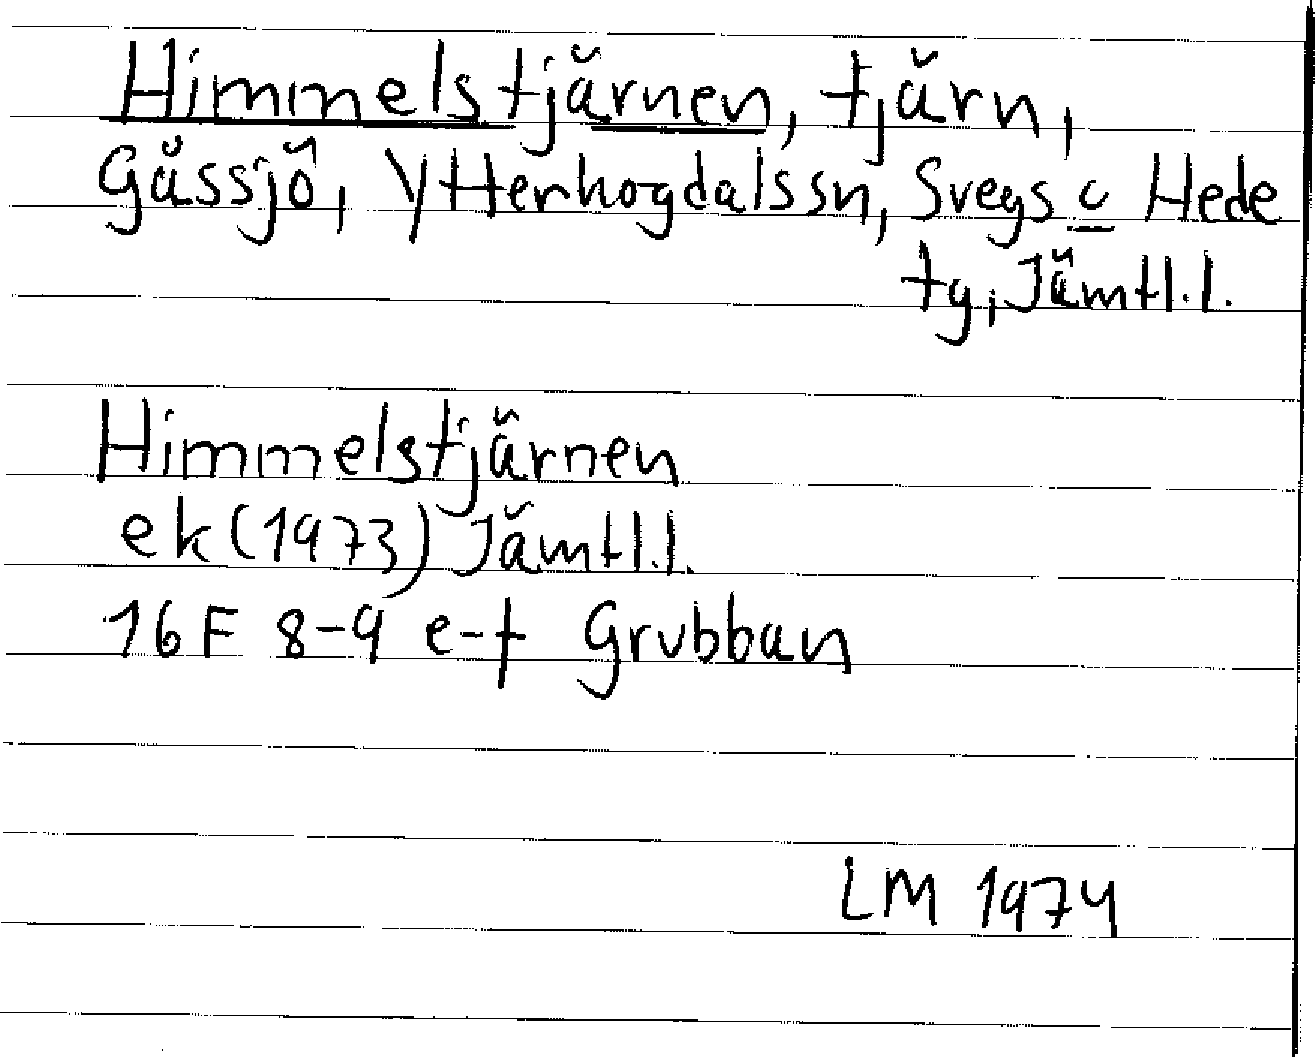 Himmelstjärnen, tjärn,
Gässjö, Ytterhogdals sn, Svegs o Hede
tg, Jämtl.l.
Himmelstjärnen
ek (1973) Jämtl.l.
16F 8-9 e-f Grubban
LM 1974